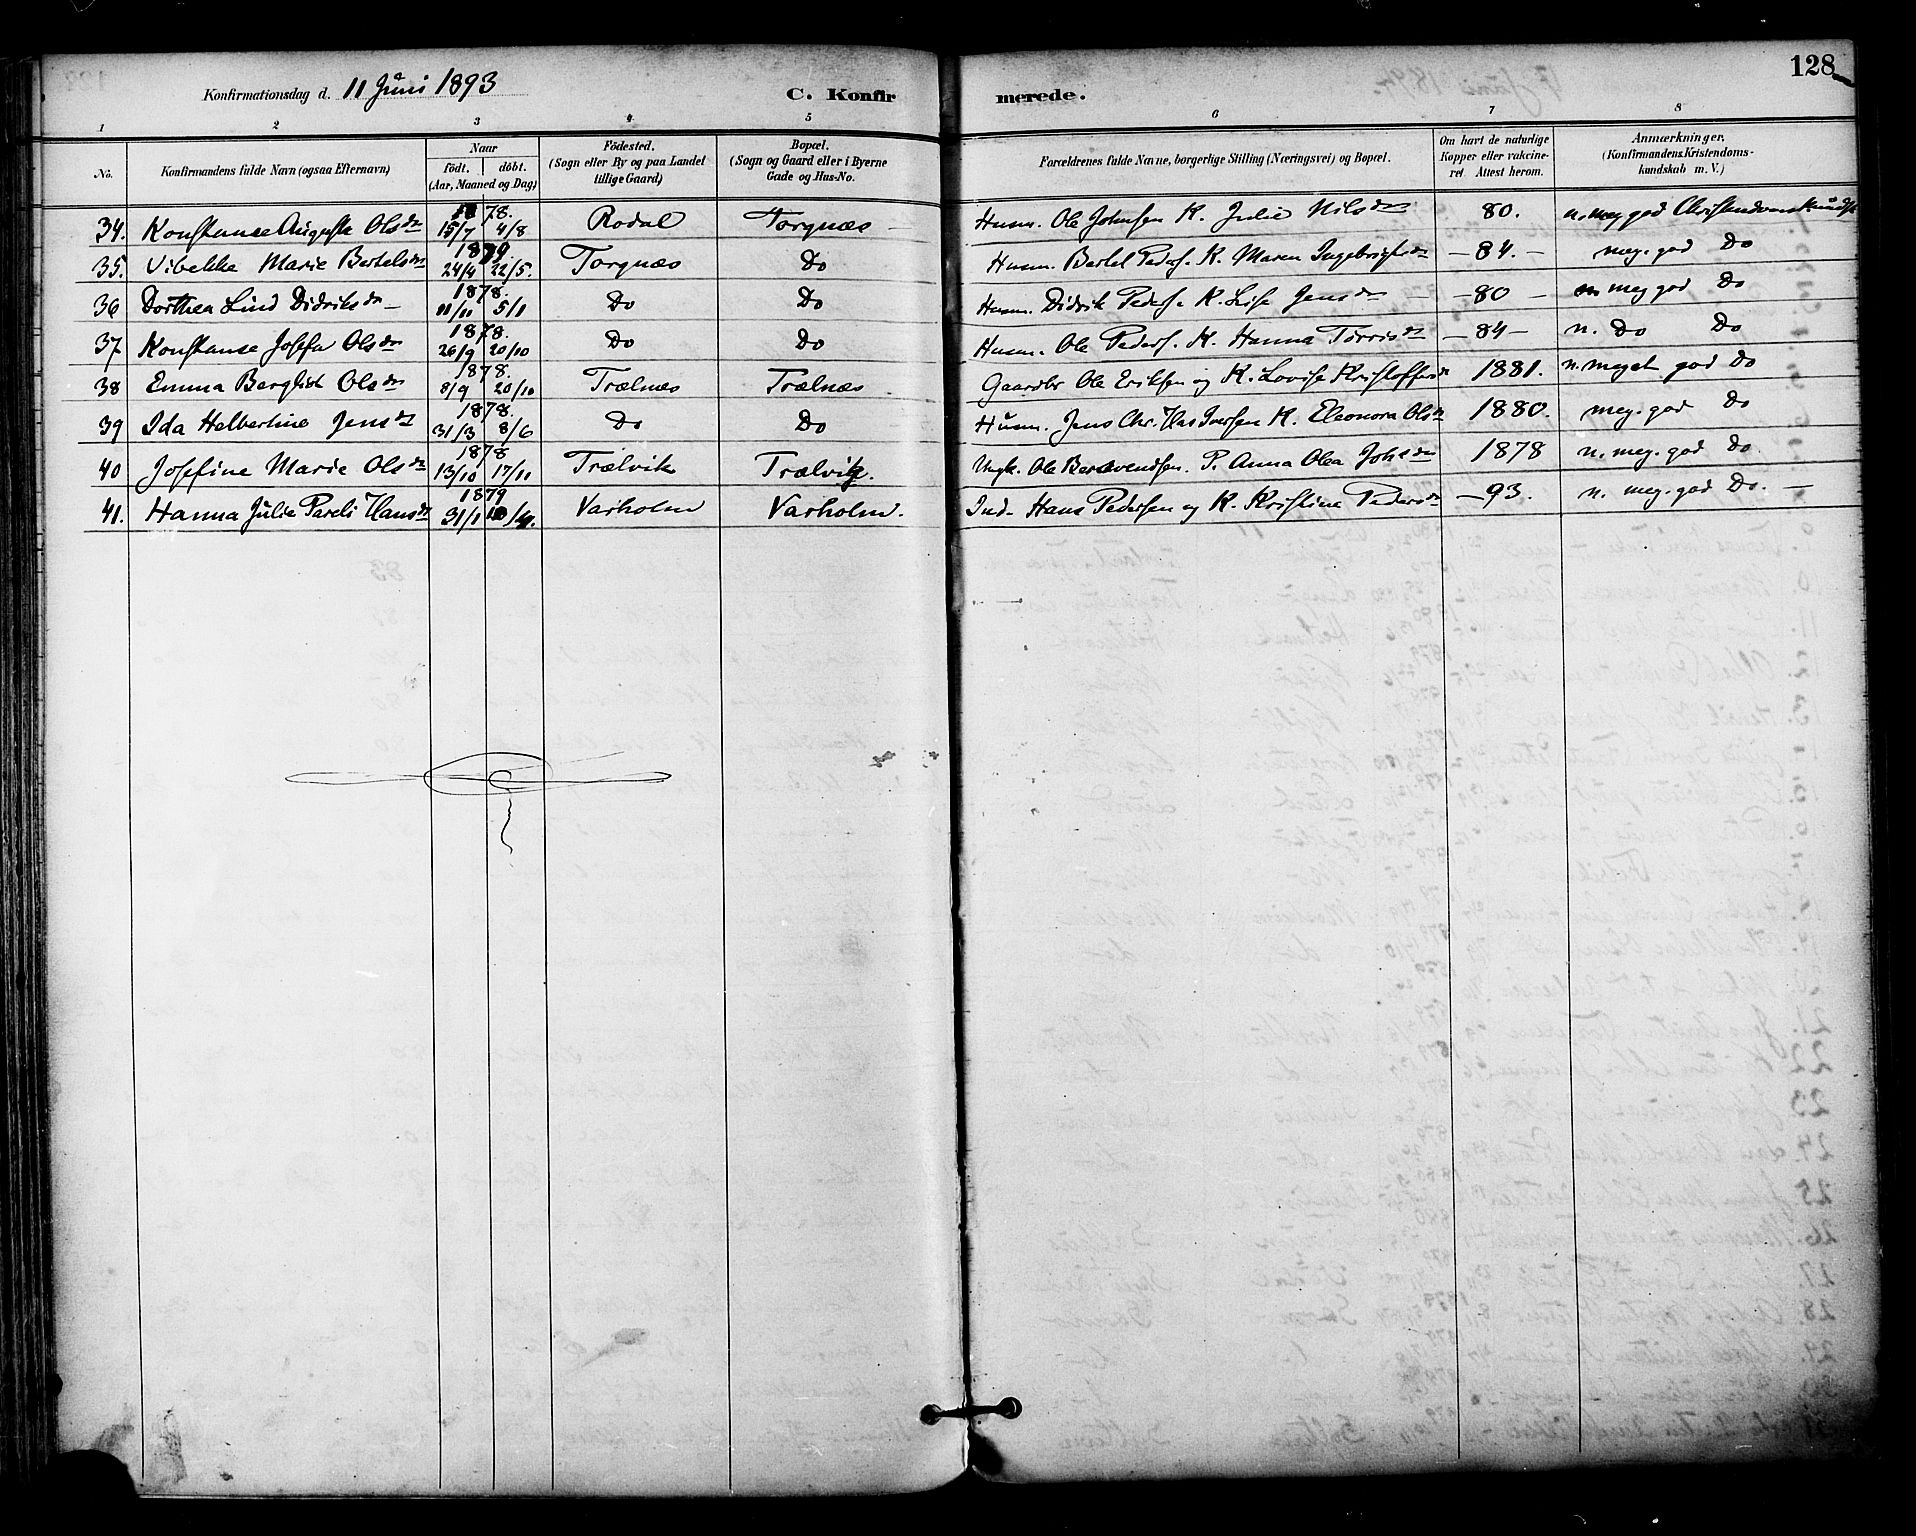 128
Konfirmationsdag d. 11 Juni 1893 C. Konfir merede.
1 2 3 4 5 6 7 8
No. Konfirmandens fulde Navn (ogsaa Efternavn) Naar født. døbt. (Aar, Maaned og Dag) Fødested. (Sogn eller By og paa Landet tillige Gaard) Bopæl. (Sogn og Gaard eller i Byerne Gade og Hus-No. Forældrenes fulde Navne, borgerlige Stilling (Næringsvei) og Bopæl. Om havt de naturlige Kopper eller vakcineret. Attest herom. Anmærkninger. (Konfirmandens Kristendomskundskab m. V.)
34. Konstanse Auguste Olsdr 1878. 15/7 4/8 Rodal Torgnæs – Husm. Ole Johnsen K. Julie Nilsdr 80. n. meg god Christendomskundsk
35. Vibekke Marie Bertelsdr 1879 24/4 22/5. Torgnæs Do Husm. Bertel Peders. K. Maren Ingebrigtsdr – 84. – meg. god Do
36 Dorthea Lind Didriksdr – 1878. 11/11 5/1 Do Do Husm. Didrik Peders. K. Lise Jensdr – 80 – meg god Do
37 Konstanse Josefa Olsdr 1878. 26/9 20/10 Do Do Husm. Ole Peders. K. Hanna Torrisdr – 84 – n. Do Do
38 Emma Bergliot Olsdr 1878. 8/9 20/10 Trælnæs Trælnæs Gaardbr Ole Eriksen og K. Lovise Kristoffersdr 1881. n. meget god Do
39 Ida Helbertine Jensdr 1878. 31/3 8/6 Do Do Husm. Jens Chr. Iversen K. Eleonora Olsdr 1880. meg. god Do
40 Josefine Marie Olsdr 1878 13/10 17/11 Trælvik Trælvik. Ungk. Ole P. Anna Olea Johsdr 1878 n. meg. god Do
41. Hanna Julie Pareli Hansdr 1879 31/1 Varholm Varholm. Ind. Hans Pedersen og K. Kristine Pedersdr – 93. n. meg. god Do. –